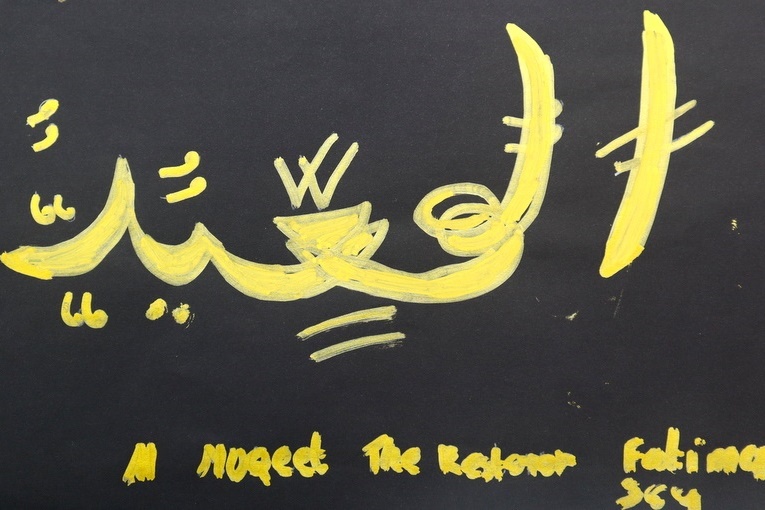 المعيد
Al Muqeet The Restorer Fatima